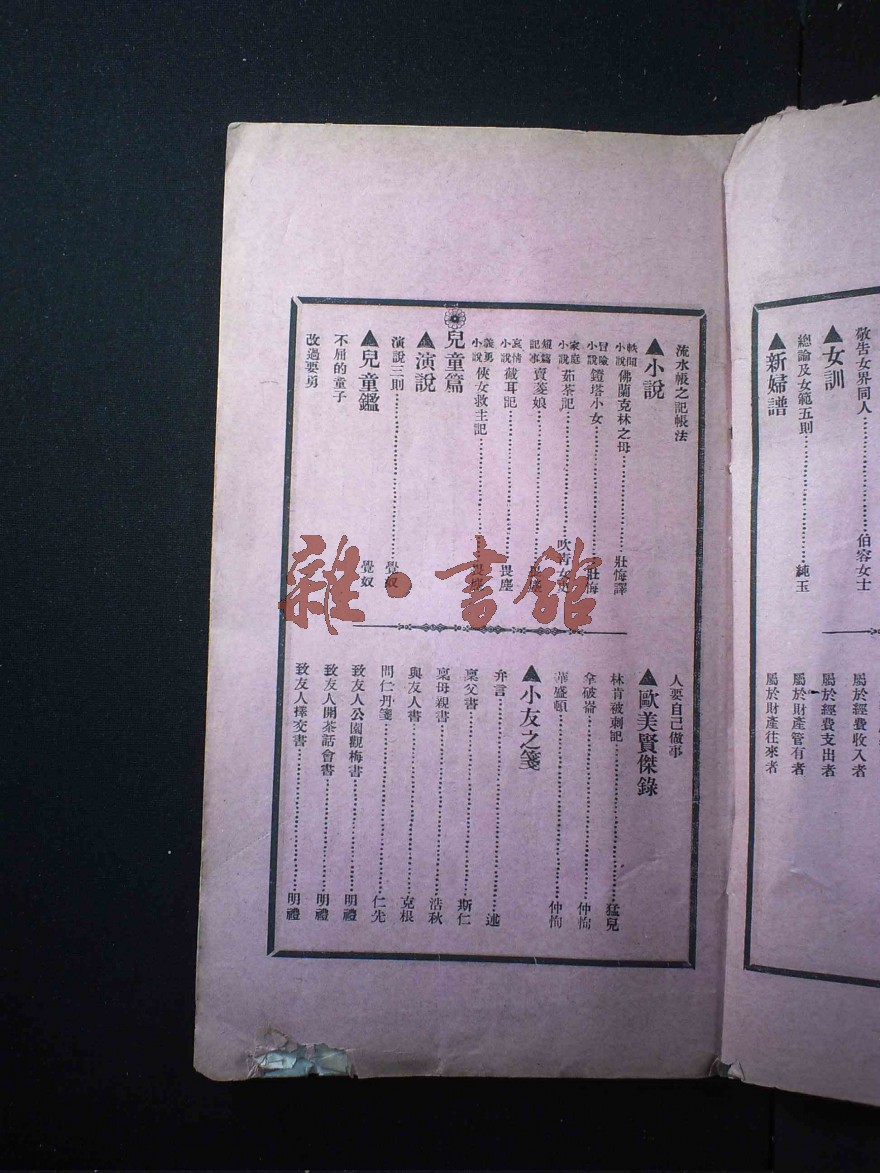 敬告女界同人……伯容女士
▲女訓
總論及女範五則……純玉
▲新婦譜
屬於經費收入者
屬於經費支出者
屬於財產管有者
屬於財產往來者
流水帳之記帳法
▲小說
軼聞小說 佛蘭克林之母……壯悔譯
冒險小說 鐙塔小女……壯悔
家庭小說 茹茶記……吹青女史
短篇記事 賣菱娘……畏塵
哀情小說 截耳記……畏塵
義勇小說 俠女救主記……畏塵
兒童篇
▲演說
演說三則……覺奴
▲兒童鑑……覺奴
不屈的童子
改過要勇
人要自己做事
▲歐美賢傑錄
林肯被刺記……猛兒
拿破崙……仲恂
華盛頓……仲恂
▲小友之箋
弁言……述
稟父書……斯仁
稟母親書……浩秋
與友人書……克根
問仁丹箋……仁先
致友人公園觀梅書……明禮
致友人開茶話會書……明禮
致友人擇交書……明禮
雜·書館